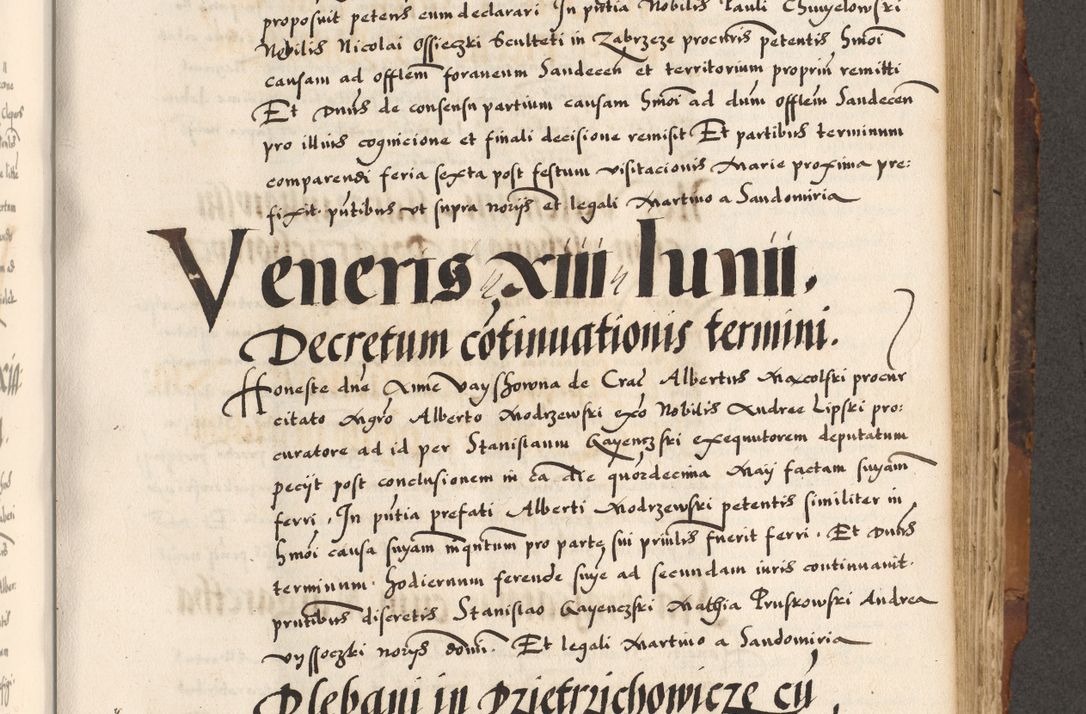 proposuit petens eum declarari In pñtia Nobilis Pauli Chwyelowski
Nobilis Nicolai Ossieczki Sculteti in Zabrzeze procuris petentis hmoi
causam ad offlem foraneum Sandecen et territorium propriu remitti
Et Dnus de consensu partium causam hmoi ad dum offlem Sandecen
pro illius cognicione et finali decisione remisit Et partibus terminum
comparendi feria sexta post festum visitacionis Marie proxima pre:
fixit pñtibus ut supra norijs et legali Martino a Sandomiria
Veneris xiii Iunii.
Decretum cõtinuationis termini.
Honeste dne Anne de Crac Albertus procur
citato Mgro Alberto Modrzewski exo Nobilis Andree Lipski pro:
curatore ad id per Stanislaum Gayenczski exequutorem deputatum
peciit post conclusionem in ca die quordecima Maij factam suyam
ferri. In pñtia prefati Alberti Modrzewski petentis similiter in
hmoi causa suyam inqntum pro parte sui prinlis fuerit ferri. Et Dnus
terminum hodiernum ferende suye ad secundam iuris continuavit.
pñtibus discretis Stanislao Gayenczski Mathia Pruskowski Andrea
Vyssoczki norijs domi. Et legali Martino a Sandomiria
Plebani in Dzietrzichowicze cũ